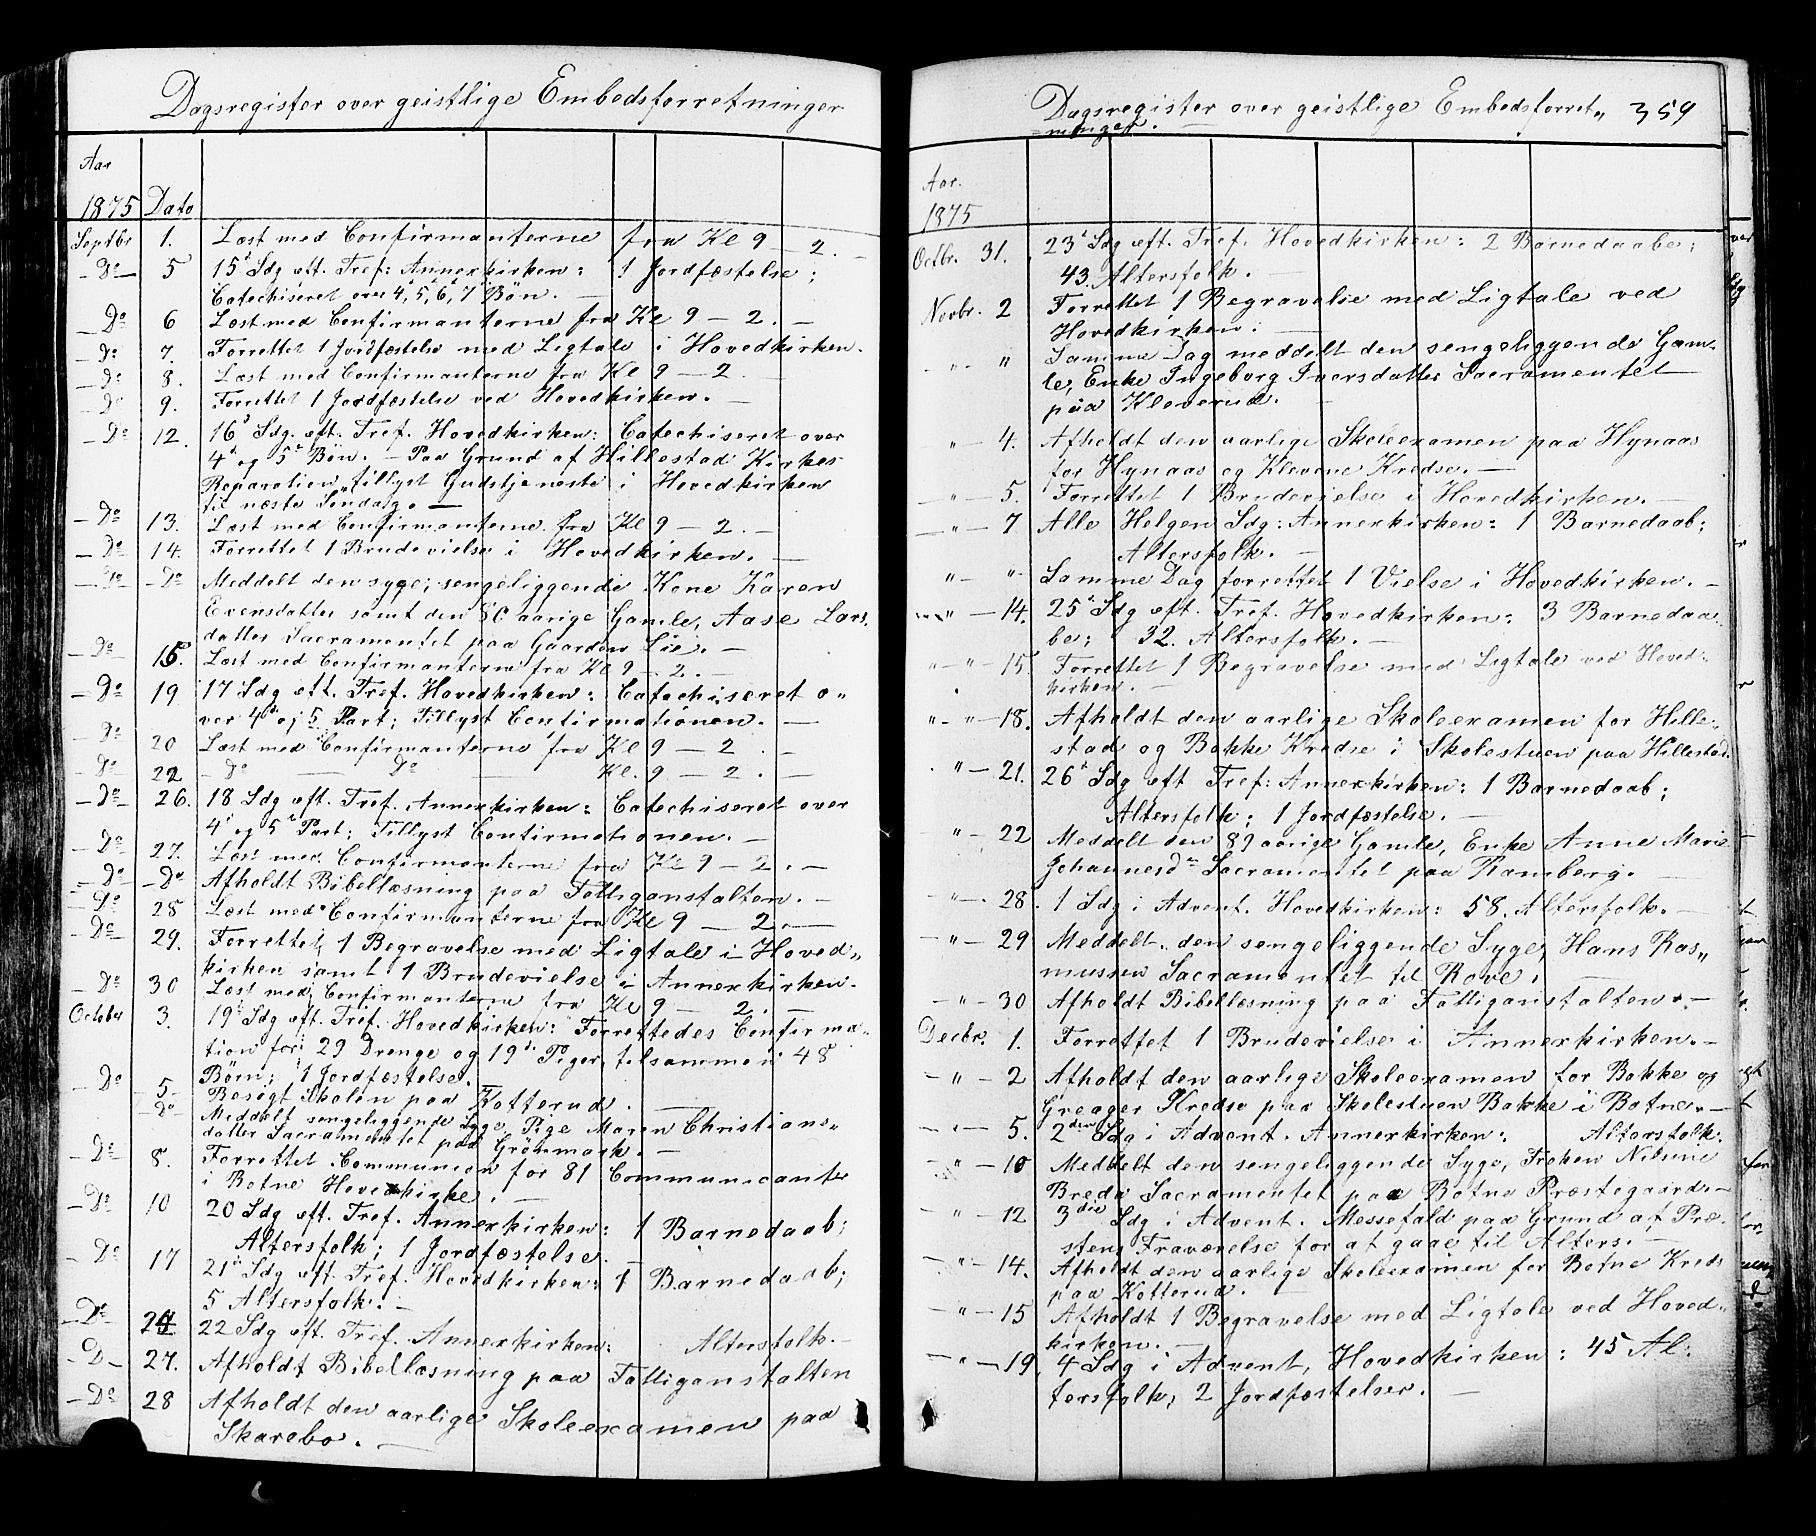 Dagsregister over geistlige Embedsforretninger
Aar
1875 Dato
Septbr 1. Læst med Confirmanterne fra Kl 9 – 2. –
– Do – 5 15de Sdg eft. Tref: Annexkirken: 1 Jordfæstelse;
Catechiseret over 4, 5, 6, 7 Bøn. –
– Do 6 Læst med Confirmanterne fra Kl 9 – 2. –
– Do 7. Forrettet 1 Jordfæstelse med Ligtale i Hovedkirken.
– Do 8. Læst med Confirmanterne fra Kl 9 – 2.
– Do 9. Forrettet 1 Jordfæstelse ved Hovedkirken. –
– Do 12. 16d Sdg. eft. Tref. Hovedkirken: Catechiseret over
4d og 5d Bøn. – Paa Grund af Hillestad Kirkes
Reparation tillyst Gudstjeneste i Hovedkirken
til næste Søndag. –
– Do 13. Læst med Confirmanterne fra Kl 9 – 2. –
– Do 14. Forrettet 1 Brudevielse i Hovedkirken. –
– Do – Do Meddelt den syge, sengeliggende Kone Karen
Evensdatter samt den 80 aarige Gamle, Aase Lars
datter Sacramentet paa Gaarden Lie. –
– Do 15. Læst med Confirmanterne fra Kl 9 – 2. –
– Do 19 17 Sdg eft. Tref. Hovedkirken: Catechiseret o„
ver 4de og 5 Part; Tillyst Confirmationen. –
– Do 20 Læst med Confirmanterne fra Kl 9 – 2. –
– Do 22 – Do – Do – Kl. 9 – 2. –
– Do – 26. 18 Sdg eft. Tref. Annexkirken: Catechiseret over
4d og 5d Part; Tillyst Confirmationen. –
– Do 27. Læst med Confirmanterne fra Kl 9 – 2. –
– Do – Do Afholdt Bibellæsning paa Fattiganstalten. –
– Do 28 Læst med Confirmanterne fra Kl 9 – 2. –
– Do 29. Forrettet 1 Begravelse med Ligtale i Hoved„
kirken samt 1 Brudevielse i Annexkirken. –
– Do 30 Læst med Confirmanterne fra Kl 9 – 2. –
October 3. 19d Sdg eft. Tref. Hovedkirken: Forrettedes Confirma„
tion for 29 Drenge og 19 Piger, tilsammen 48
Børn; 1 Jordfæstelse.
– Do 5 Besøgt Skolen paa Kotterud. –
– Do Meddelt sengeliggende Syge, Pige Maren Christians„
datter Sacramentet paa Grønmark. –
– Do 8. Forrettet Communion for 81 Communicanter
i Botne Hovedkirke. –
– Do 10 20 Sdg eft. Tref. Annexkirken: 1 Barnedaab;
Altersfolk; 1 Jordfæstelse.
– Do 17 21d Sdg eft. Tref. Hovedkirken: 1 Barnedaab;
5 Altersfolk. –
– Do 24 22 Sdg eft. Tref. Annexkirken: Altersfolk. –
– D – 27. Afholdt Bibellæsning paa Fattiganstalten
– Do 28 Afholdt den aarlige Skoleexamen paa
Skarebo. –
Dagsregister over geistlige Embedsforret„ 359
ninger. –
Aar.
1875
Octbr. 31. 23d Sdg eft. Tref. Hovedkirken: 2 Barnedaabe;
43. Altersfolk. –
Novbr. 2 Forrettet 1 Begravelse med Ligtale ved
Hovedkirken. –
– „ – „ Samme Dag meddelt den sengeliggende Gam„
le, Enke Ingeborg Iversdatter Sacramentet
paa Kleverud. –
„ – 4. Afholdt den aarlige Skoleexamen paa Hynaas
for Hynaas og Klevene Kredse. –
„ – 5. Forrettet 1 Brudevielse i Hovedkirken. –
– „ – 7 Alle Helgen Sdg: Annexkirken: 1 Barnedaab;
Altersfolk. –
„ – „ Samme Dag forrettet 1 Vielse i Hovedkirken. –
„ – 14. 25d Sdg eft. Tref. Hovedkirken: 3 Barnedaa„
be; 32. Altersfolk. –
„ – „ – 15. Forrettet 1 Begravelse med Ligtale ved Hoved„
kirken. –
„ – „ – 18. Afholdt den aarlige Skoleexamen for Hille„
stad og Bakke Kredse i Skolestuen paa Hillestad.
„ – 21. 26d Sdg eft Tref: Annexkirken: 1 Barnedaab;
Altersfolk; 1 Jordfæstelse. –
„ – 22 Meddelt den 89 aarige Gamle, Enke Anne Marie
Johannesdr Sacramentet paa Ramberg. –
„ – 28. 1 Sdg i Advent. Hovedkirken: 58. Altersfolk. –
– „ – 29 Meddelt den sengeliggende Syge, Hans Ras„
mussen Sacramentet til Rove. –
– „ – 30 Afholdt Bibellæsning paa Fattiganstalten. –
Decbr. 1. Forrettet 1 Brudevielse i Annexkirken. –
– „ – 2 Afholdt den aarlige Skoleexamen for Bakke og
Greager Kredse paa Skolestuen Bakke i Botne. –
– „ – 5. 2den Sdg i Advent. Annexkirken: Altersfolk.
– „ – 10 Meddelt den sengeliggende Syge, Frøken Nilsine
Breda Sacramentet paa Botne Præstegaard. –
– „ – 12 3die Sdg i Advent. Messefald paa Grund af Præ„
stens Fraværelse for at gaae til Alters. –
– „ – 14. Afholdt den aarlige Skoleexamen for Botne Kreds
paa Kotterud. –
– „ – 15 Afholdt 1 Begravelse med Ligtale ved Hoved„
kirken. –
– „ – 19 4 Sdg i Advent, Hovedkirken: 45 Al„
tersfolk; 2 Jordfæstelser. –